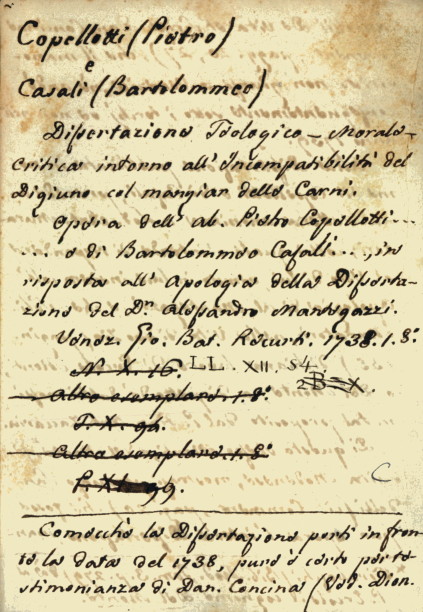 Copellotti (Pietro)
e
Casali (Bartolommeo)
Dissertazione Teologico-Morale-
Critica intorno all'Incompatibilità del
Digiuno col mangiar delle Carni.
Opera dell'ab. Pietro Copellotti...
... e di Bartolommeo Casali..., in
risposta all'Apologia della Disserta-
zione del Dr. Alessandro Mantegazzi.
Venez. Gio. Bat. Recurti. 1738. 1. 8.°
N. X. 16. LL. XII. 54.
Altro esemplare. 1. 8.°
T. X. 94.
Altro esemplare. 1. 8.°
99.
C
Comechè la Dissertazione porti in fron-
te la data del 1738, pure è certo per te-
stimonianza di Dan. Concina (Ved. Dion.